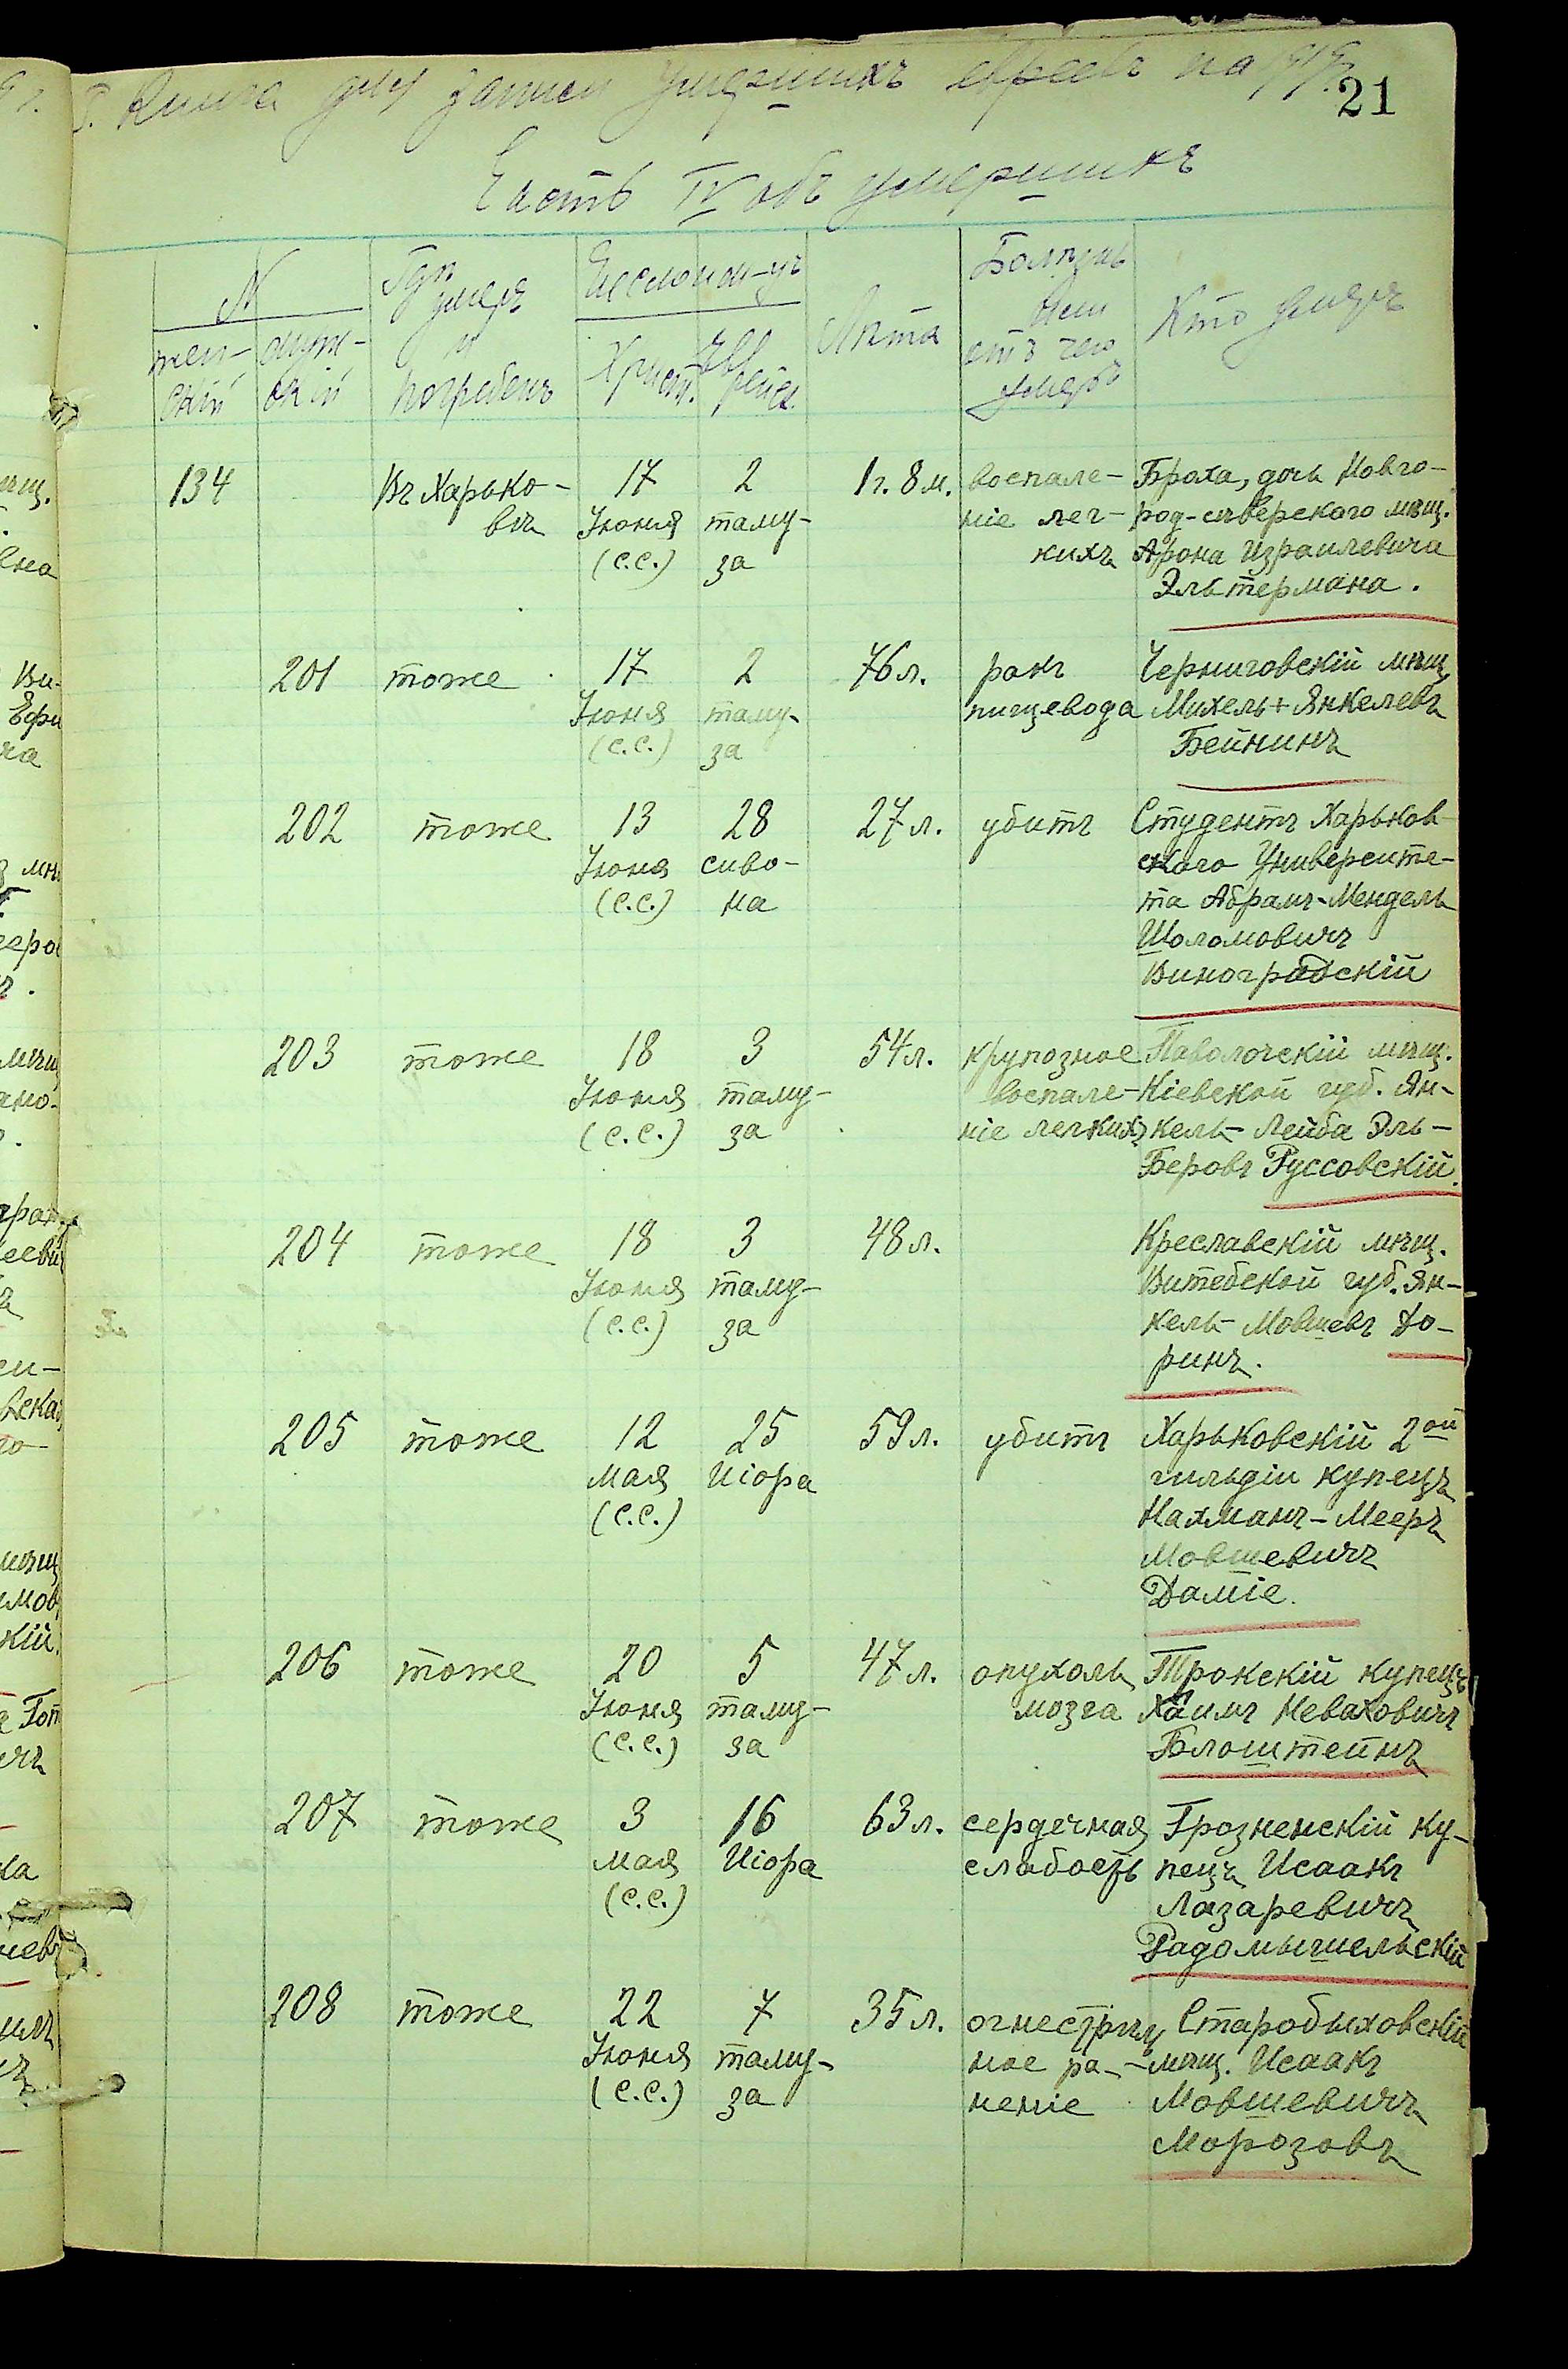 Книга для записи умершихъ евреевъ на 1919
21
Часть IV объ умершихъ
N
женскій
мужскій
Гдѣ умеръ и погребенъ
Число и м-цъ
Христ.
Еврейск.
Лѣта
Болѣзнь или отъ чего умеръ
Кто умеръ
134 Въ Харько- 17 2 1 г. 8 м. воспале- Броха, дочь Новго-
вѣ Іюня таму- ніе лег- род-сѣверского мѣщ.
(с.с.) за кихъ Арона Израилевича
Эльтермана.
201 тоже 17 2 76 л. ракъ Черниговскій мѣщ.
Іюня таму- пищевода Михель Янкелевъ
(с.с.) за Бейнинъ
202 тоже 13 28 27 л. убитъ Студентъ Харьков-
Іюня сиво- ского Университе-
(с.с.) на та Абрамъ-Мендель
Шоломовичъ
Виноградскій
203 тоже 18 3 54 л. крупозное Паволочскій мѣщ.
Іюня таму- воспале- Кіевской губ. Ян-
(с.с.) за ніе легкихъ кель-Лейба Эль-
Беровъ Руссовскій.
204 тоже 18 3 48 л. Креславскій мѣщ.
Іюня таму- Витебской губ. Ян-
(с.с.) за кель-Мовшевъ До-
ринъ.
205 тоже 12 25 59 л. убитъ Харьковскій 2ой
мая Иіора гильдіи купецъ
(с.с.) Нахманъ-Мееръ
Мовшевичъ
Даміе.
206 тоже 20 5 47 л. опухоль Трокскій купецъ
Іюня таму- мозга Хаимъ Неваховичъ
(с.с.) за Блоштейнъ
207 тоже 3 16 63 л. сердечная Грозненскій ку-
мая Иіора слабость пецъ Исаакъ
(с.с.) Лазаревичъ
Радомышельскій
208 тоже 22 7 35 л. огнестрѣль Старобыховскій
Іюня таму- ное ра- мѣщ. Исаакъ
(с.с.) за неніе Мовшевичъ
Морозовъ